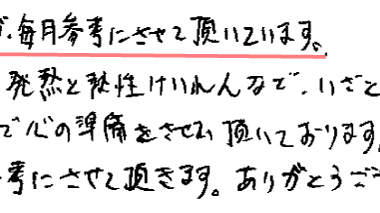 毎月参考にさせて頂いています。
発熱と熱性けいれんなどで、いざと
で心の準備をさせて頂いております
考にさせて頂きます。ありがとうご